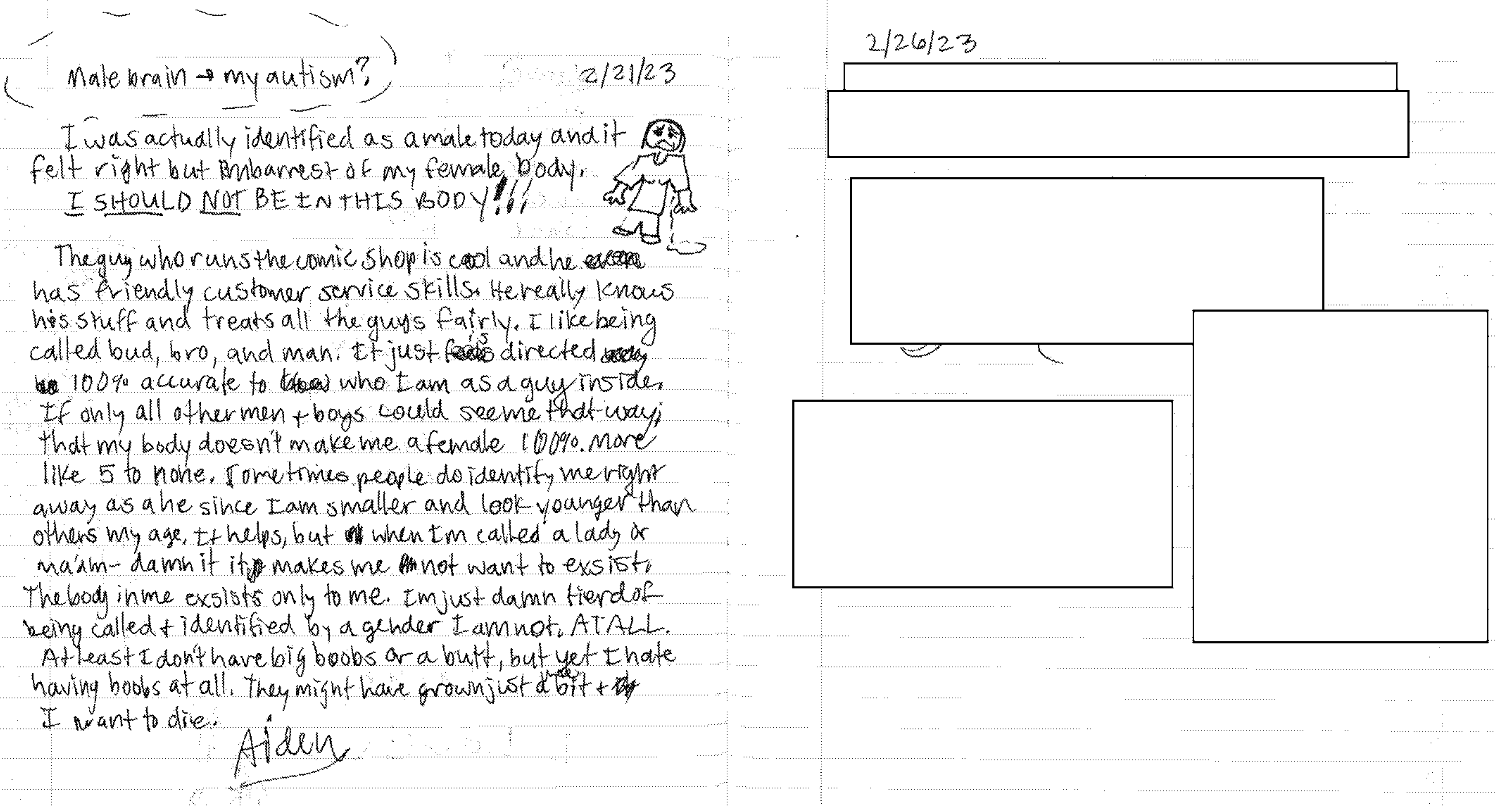 Male brain → my autism?
2/21/23
I was actually identified as a male today and it
felt right but Embarrest of my female body.
I SHOULD NOT BE IN THIS BODY!!!
The guy who runs the comic shop is cool and he
has friendly customer service skills. He really knows
his stuff and treats all the guys fairly. I like being
called bud, bro, and man. It just is directed
100% accurate to who I am as a guy inside.
If only all other men + boys could see me that way;
that my body doesn't make me a female 100%. More
like 5 to none. Sometimes people do identify me right
away as a he since I am smaller and look younger than
others my age. It helps, but when I'm called a lady or
ma'am- damn it it makes me not want to exsist.
The body in me exsists only to me. I'm just damn tierd of
being called + identified by a gender I am not, AT ALL.
At least I don't have big boobs or a butt, but yet I hate
having boobs at all. They might have grown just a bit +
I want to die.
Aiden
2/26/23